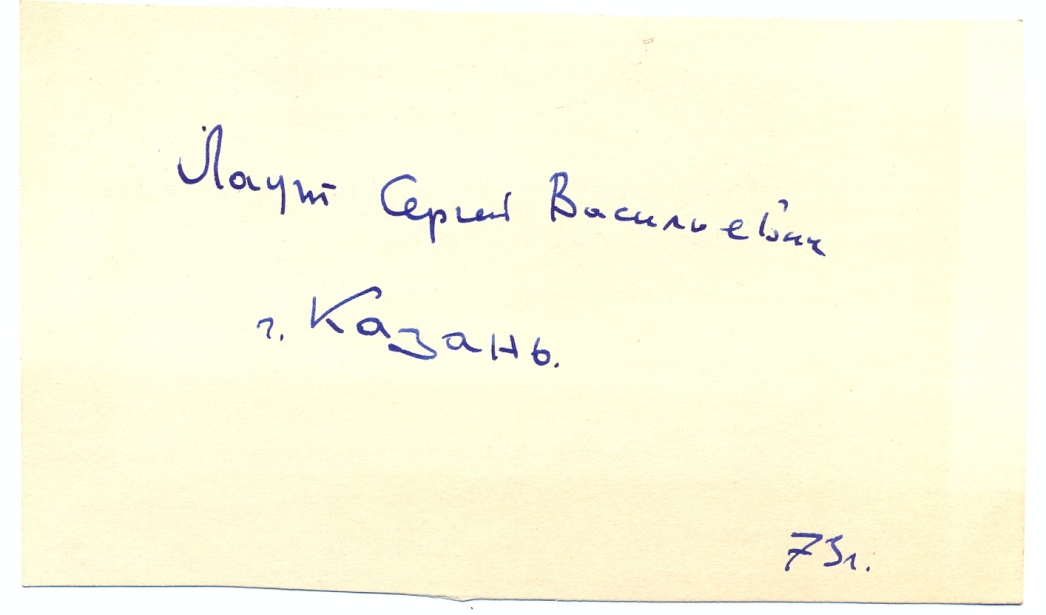 Лаут Сергей Васильевич
г. Казань.
73г.